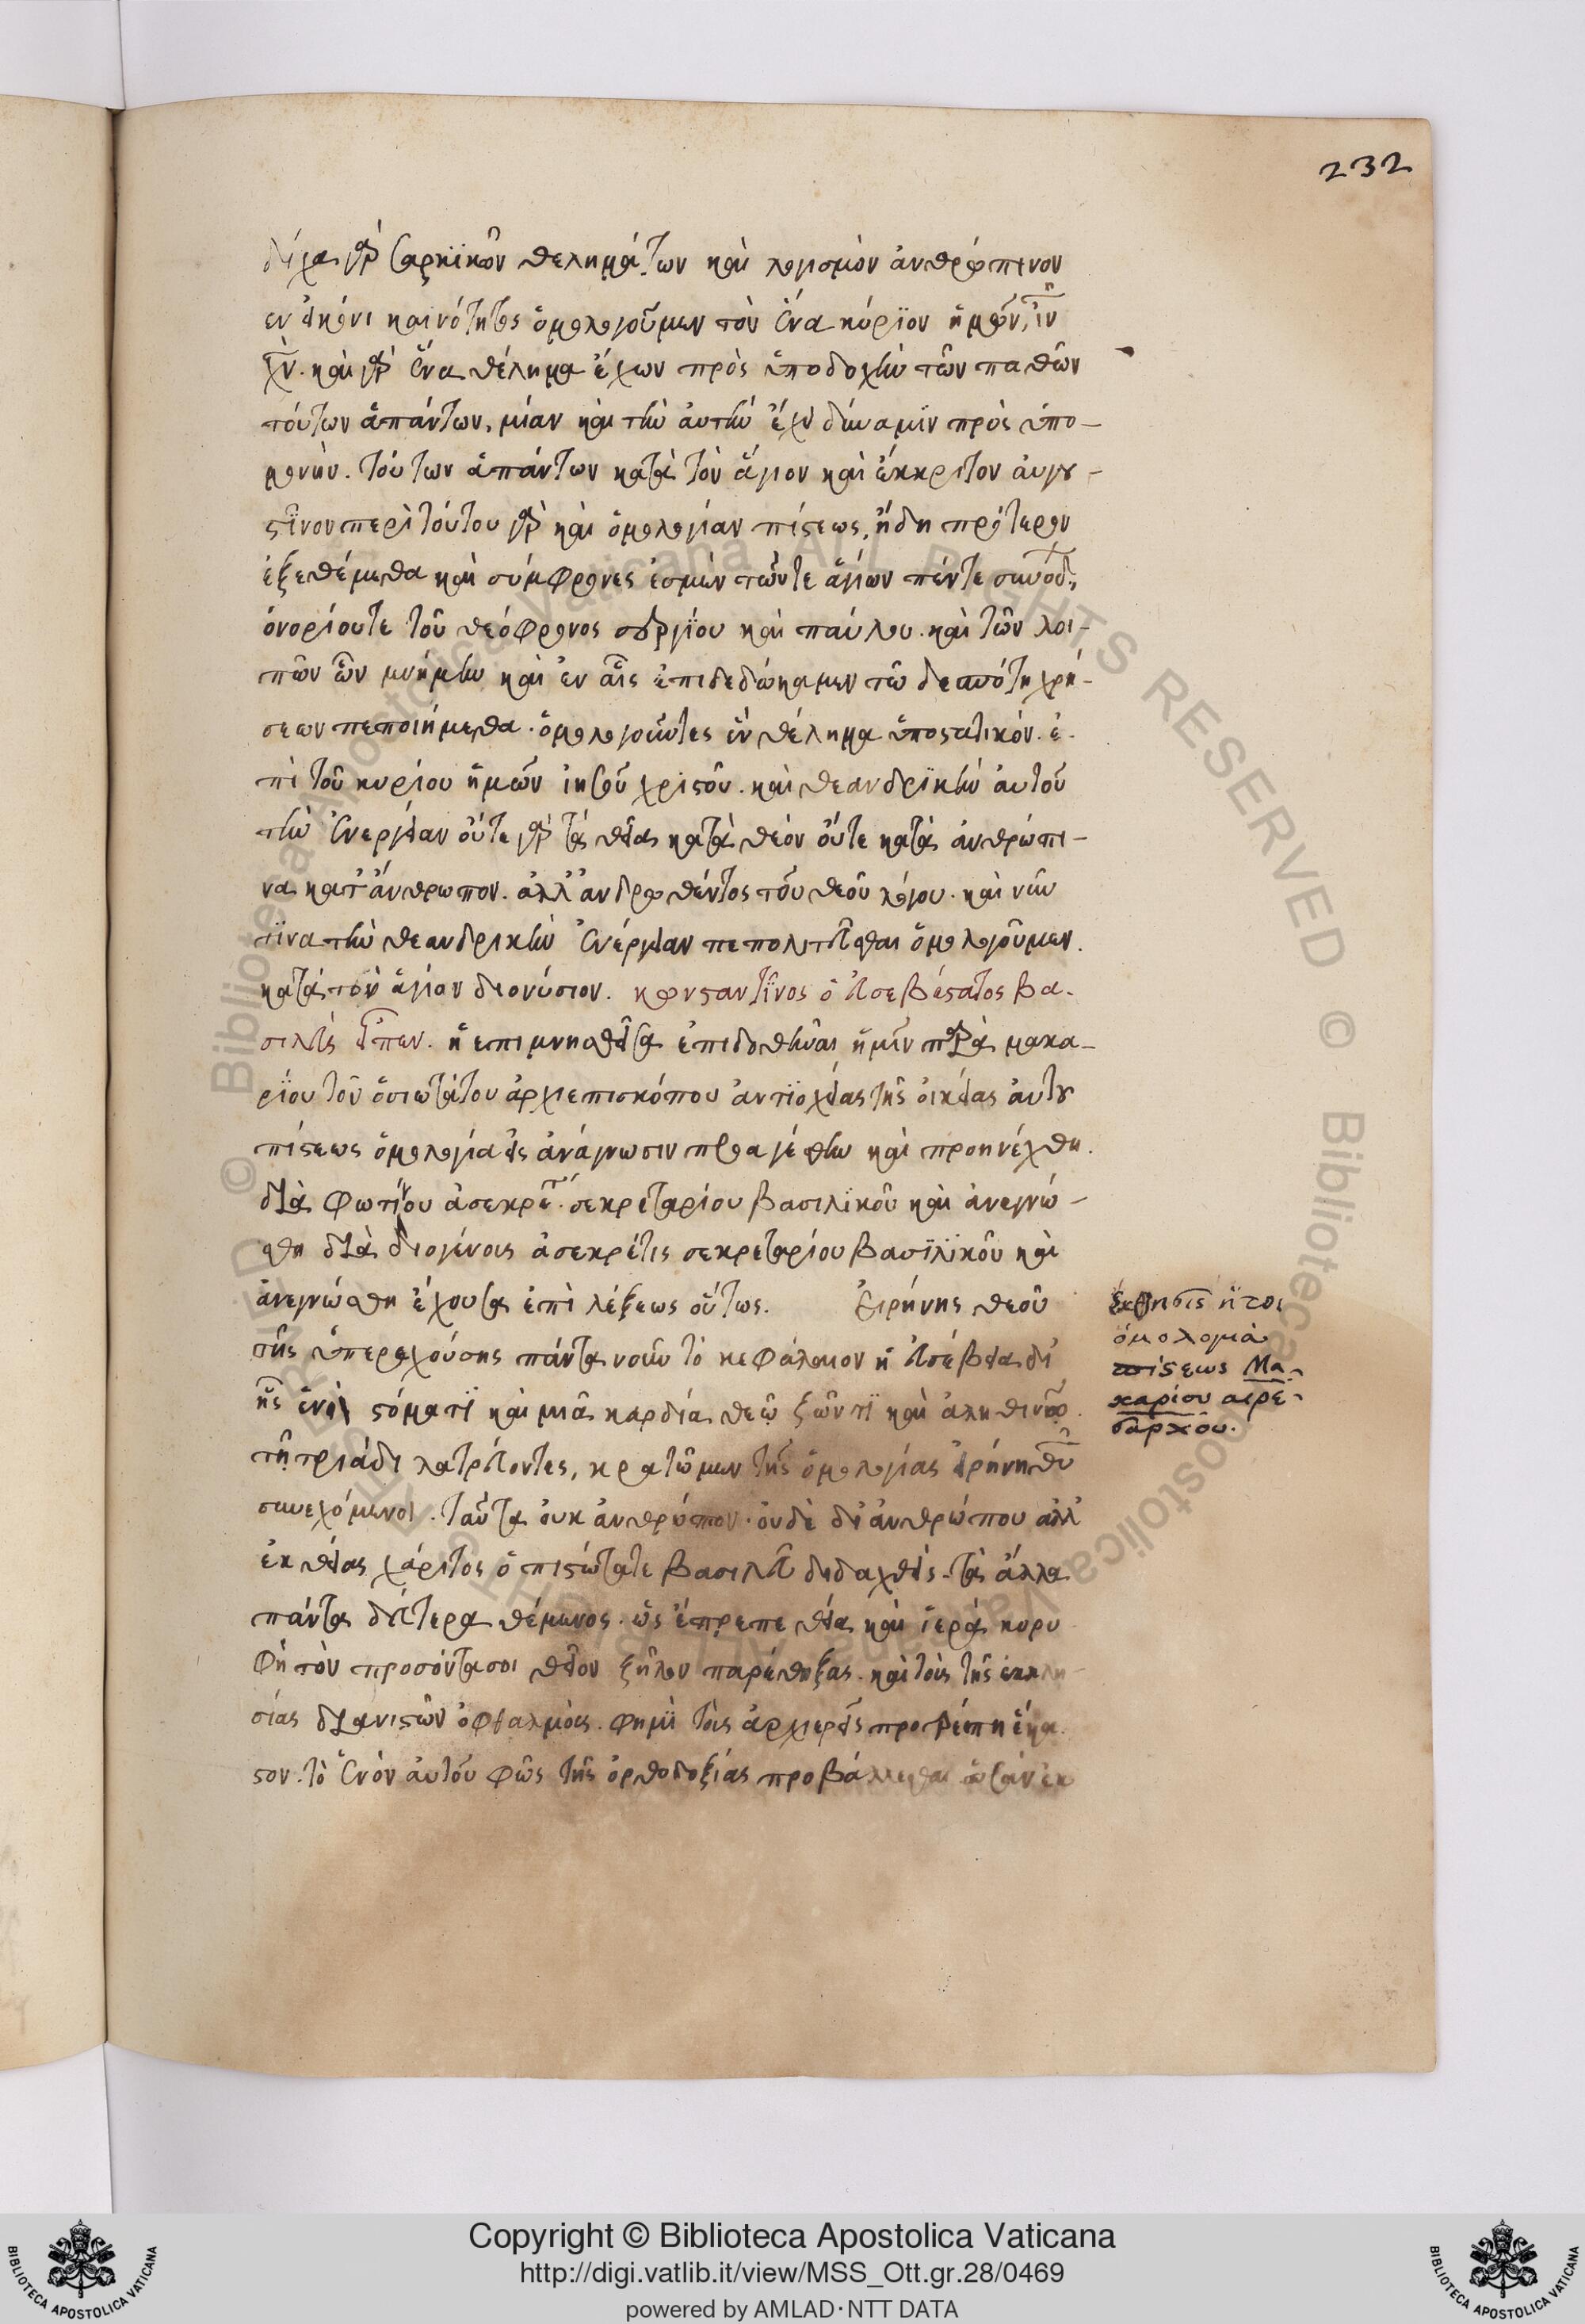 232
δίχα γὰρ σαρκϊκῶν θελημάτων καὶ λογισμὸν ἀνθρώπινον
εν εἰκόνι καινότητος ὅμολογοῦμεν τὸν ἕνα κύρϊον ἥμῶν, ἰν
χν. καὶ γὰρ ἕνα θέλημα ἔχων πρὸς ὕποδοχὴν τῶν παθῶν
τούτων ἅπάντων, μίαν καὶ τὴν ἀυτὴν ἔχει δύναμϊν πρὸς ὑπο-
μονὴν. τούτων ἁπάντων κατὰ τὸν ἅγιον καὶ ἔκκριτον ἀυγου-
στῖνον περὶ τούτου γὰρ καὶ ὁμολογίαν πίστεως, ἤδη πρότερον
ἐξεθέμεθα καὶ σύμφρονες ἐσμὲν τῶν τε ἁγίων πέντε συνόδ.,
ὁνορίου τε τοῦ θεόφρονος σεργίου καὶ παύλου. καὶ τῶν λοι-
πῶν ὧν μνήμην καὶ ἐν αἷς ἐπιδεδώκαμεν τῶ δεσπότη χρή-
σεων πεποιήμεθα. ὅμολογοῦντες ἓν θέλημα ὕποστατικόν. ἐ-
πὶ τοῦ κυρίου ἥμῶν ἰησοῦ χριστοῦ. καὶ θεανδρϊκὴν ἀυτοῦ
τὴν ἐνεργείαν οὔτε γὰρ τὰς θείας κατὰ θεόν οὔτε κατὰ ἀνθρώπι-
να κατ' ἄνθρωπον. ἀλλ' ἀνδρωθέντος τοῦ θεοῦ λόγου. καὶ νῦν
τϊνα τὴν θεανδρικὴν ἐνέργειαν πεπολιτεῦσθαι ὅμολογοῦμεν.
κατὰ τὸν ἅγιον διονύσιον. κωνσταντῖνος ὁ ἐυσεβέστατος βα-
σιλεὺς εἶπεν. ἥ επιμνησθεῖσα ἐπιδοθῆναι ἥμῖν παρὰ μακα-
ρίου τοῦ ὅσιωτάτου ἀρχιεπισκόπου ἀντϊοχείας τῆς ὀικείας ἀυτου
πίστεως ὅμολογία εἰς ἀνάγνωσιν παραγέσθω καὶ προηνέχθη.
διὰ φωτίνου ἀσεκρετ. σεκρεταρίου βασιλϊκοῦ καὶ ἀνεγνώ-
σθη διὰ διογένους ἀσεκρέτις σεκρεταρίου βασϊλϊκοῦ καὶ
ἀνεγνώσθη ἔχουσα ἐπὶ λέξεως οὕτως. Ἐιρήνης θεοῦ
τῆς ὕπερεχούσης πάντα νοῦν τὸ κεφάλαιον ἥ ἐυσέβεια δι'
ἧς ἕνὶ στόματϊ καὶ μιᾶ καρδία θεῷ ζῶντϊ καὶ ἀληθινῷ.
τῆ τριάδι λατρεύοντες, κρατῶμεν τῆς ὅμολογίας εἰρήνη θυ
συνεχόμενοι. ταῦτα ὀυκ ἀνθρώπον. ὀυδὲ δι' ἀνθρώπου ἀλλ'
ἐκ θείας χάριτος ὅ πιστώτατε βασιλεῦ διδαχθεὶς. τὰ ἄλλα
πάντα δέυτερα θέμενος. ὡς ἔπρεπε θεία καὶ ἵερὰ κορυ
φή τὸν προσόντα σοι θεῖον ζῆλον παρέθηξας. καὶ τοὺς τῆς ἐκκλη-
σίας διανιστῶν ὀφθαλμοὺς. φημὶ τοὺς ἀρχιερεῖς προτρέπη ἕκα
στον. τὸ ἐνὸν ἀυτοῦ φῶς τῆς ὀρθοδοξίας προβάλλεσθαι ὡσὰν ἐκ
ἔκθησις ἤτοι
ὁμολογία
πίστεως Μα-
καρίου αιρε-
σιάρχου.
© Biblioteca Apostolica Vaticana ALL RIGHTS RESERVED © Biblioteca Apostolica Vaticana ALL RIGHTS RESERVED
Copyright © Biblioteca Apostolica Vaticana
http://digi.vatlib.it/view/MSS_Ott.gr.28/0469
powered by AMLAD·NTT DATA
BIBLIOTECA APOSTOLICA VATICANA
BIBLIOTECA APOSTOLICA VATICANA